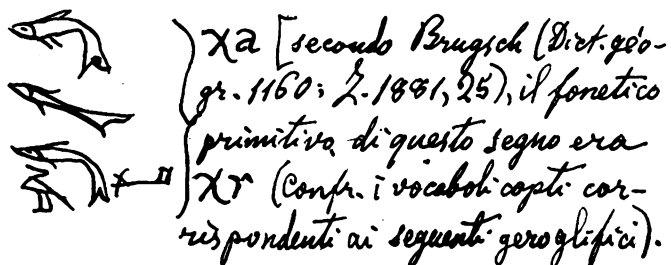 χa [secondo Brugsch (Dict. géo-
gr. 1160; Z. 1881, 25), il fonetico
primitivo di questo segno era
χr (Confr. i vocaboli copti cor-
rispondenti ai seguenti geroglifici).